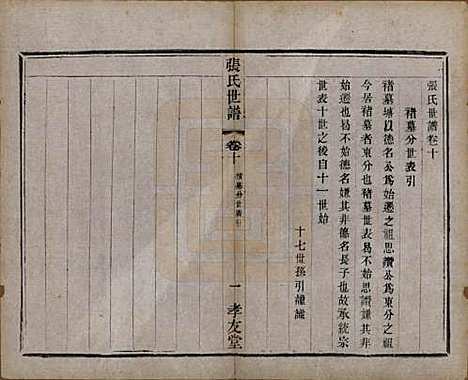 張氏世譜卷十
褚墓分世表引
褚墓墳以德名公爲始遷之祖思讚公爲東分之祖
今居褚墓者東分也褚墓世表易不始思讚嫌其非
始遷也易不始德名嫌其非德名長子也故承統宗
世表十世之後自十一世始
十七世孫引謹識
張氏世譜
卷十
褚墓分世表引
一
孝友堂